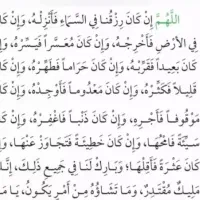 اللَّهُمَّ إِنْ كَانَ رِزْقُنَا فِي السَّمَاءِ فَأَنْزِلْهُ، وَإِنْ كَانَ
فِي الأَرْضِ فَأَخْرِجْهُ، وَإِنْ كَانَ مُعَسَّراً فَيَسِّرْهُ، وَإِنْ
كَانَ بَعِيداً فَقَرِّبْهُ، وَإِنْ كَانَ حَرَاماً فَطَهِّرْهُ، وَإِنْ كَانَ
قَلِيلاً فَكَثِّرْهُ، وَإِنْ كَانَ مَعْدُوماً فَأَوْجِدْهُ، وَإِنْ كَانَ
مَوْقُوفاً فَأَجِرْهِ، وَإِنْ كَانَ ذَنْباً فَاغْفِرْهُ، وَإِنْ كَانَ
سَيِّئَةً فَامْحُهَا، وَإِنْ كَانَ خَطِيئَةً فَتَجَاوَزْ عَنْهَا، وَإِنْ
كَانَ عَثْرَةً فَأَقِلْهَا؛ وَبَارِكْ لَنَا فِي جَمِيعِ ذَلِكَ، إِنَّكَ
مَلِيكٌ مُقْتَدِرٌ، وَمَا تَشَاؤُهُ مِنْ أَمْرٍ يَكُونُ، يَا